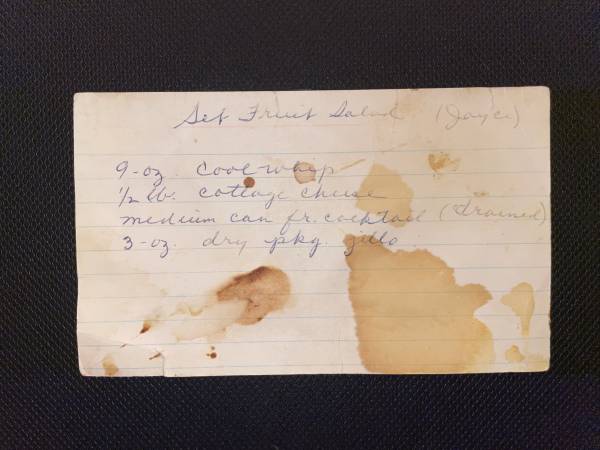 Set Fruit Salad (Joyce)
9-oz. Cool-whip
1/2 lb. cottage cheese
medium can fr. cocktail (drained)
3-oz. dry pkg. jello